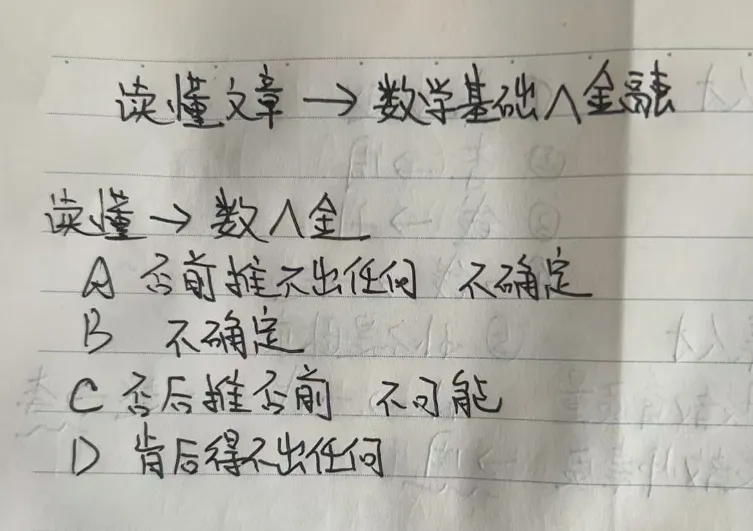 读懂文章 → 数学基础∧金融
读懂 → 数∧金
A 否前推不出任何 不确定
B 不确定
C 否后推否前 不可能
D 肯后得不出任何